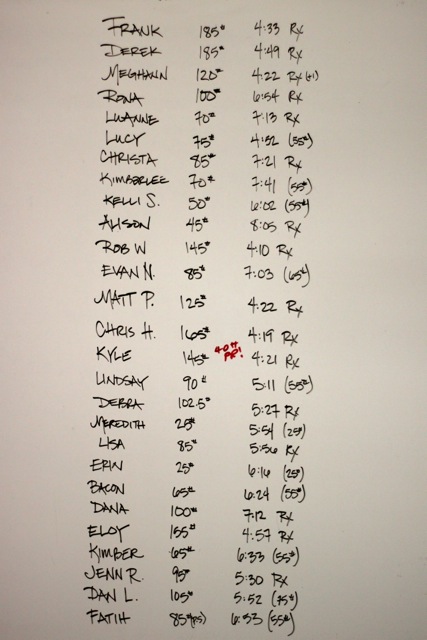 FRANK 185# 4:33 Rx
DEREK 185# 4:49 Rx
MEGHANN 120# 4:22 Rx (+1)
RONA 100# 6:54 Rx
LUANNE 70# 7:13 Rx
LUCY 75# 4:52 (55#)
CHRISTA 85# 7:21 Rx
KIMBERLEE 70# 7:41 (55#)
KELLI S. 50# 6:02 (55#)
ALISON 45# 8:05 Rx
ROB W 145# 4:10 Rx
EVAN N. 85# 7:03 (65#)
MATT P. 125# 4:22 Rx
CHRIS H. 165# 4:19 Rx
KYLE 145# 40# PR! 4:21 Rx
LINDSAY 90# 5:11 (55#)
DEBRA 102.5# 5:27 Rx
MEREDITH 25# 5:54 (25#)
LISA 85# 5:56 Rx
ERIN 25# 6:16 (25#)
BACON 65# 6:24 (55#)
DANA 100# 7:12 Rx
ELOY 155# 4:57 Rx
KIMBER 65# 6:33 (55#)
JENN R. 95# 5:30 Rx
DAN L. 105# 5:52 (75#)
FATIH 85# 6:53 (55#)